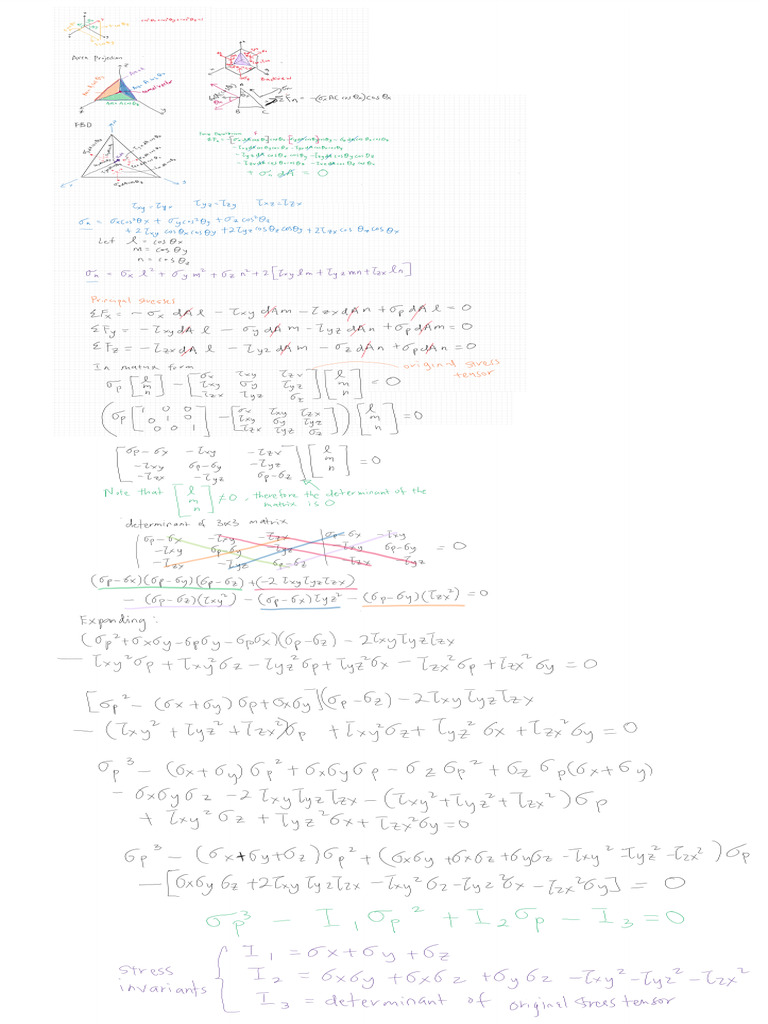 Area Projection
FBD
ΣFn = -(σxA cosθx)cosθx
+ σn dA = 0
τxy = τyx τyz = τzy τxz = τzx
σn = σx cos²θx + σy cos²θy + σz cos²θz
+ 2τxy cosθx cosθy + 2τyz cosθy cosθz + 2τzx cosθx cosθz
Let l = cosθx
m = cosθy
n = cosθz
σn = σx l² + σy m² + σz n² + 2[τxy lm + τyz mn + τzx ln]
Principal stresses
ΣFx = -σx dA l - τxy dA m - τzx dA n + σp dA l = 0
ΣFy = -τxy dA l - σy dA m - τyz dA n + σp dA m = 0
ΣFz = -τzx dA l - τyz dA m - σz dA n + σp dA n = 0
In matrix form
original stress tensor
σp [l m n] - [σx τxy τzx; τxy σy τyz; τzx τyz σz] [l m n] = 0
(σp [1 0 0; 0 1 0; 0 0 1] - [σx τxy τzx; τxy σy τyz; τzx τyz σz]) [l m n] = 0
[σp-σx -τxy -τzx; -τxy σp-σy -τyz; -τzx -τyz σp-σz] [l m n] = 0
Note that [l m n] ≠ 0, therefore the determinant of the
matrix is 0
determinant of 3x3 matrix
|σp-σx -τxy -τzx| σp-σx -τxy
-τxy σp-σy -τyz -τxy σp-σy = 0
-τzx -τyz σp-σz -τzx -τyz
(σp-σx)(σp-σy)(σp-σz) + (-2τxyτyzτzx)
- (σp-σz)(τxy²) - (σp-σx)τyz² - (σp-σy)(τzx²) = 0
Expanding:
(σp² + σxσy - σpσy - σpσx)(σp-σz) - 2τxyτyzτzx
- τxy²σp + τxy²σz - τyz²σp + τyz²σx - τzx²σp + τzx²σy = 0
[σp² - (σx+σy)σp + σxσy](σp-σz) - 2τxyτyzτzx
- (τxy² + τyz² + τzx²)σp + τxy²σz + τyz²σx + τzx²σy = 0
σp³ - (σx+σy)σp² + σxσyσp - σzσp² + σzσp(σx+σy)
- σxσyσz - 2τxyτyzτzx - (τxy² + τyz² + τzx²)σp
+ τxy²σz + τyz²σx + τzx²σy = 0
σp³ - (σx+σy+σz)σp² + (σxσy + σxσz + σyσz - τxy² - τyz² - τzx²)σp
- [σxσyσz + 2τxyτyzτzx - τxy²σz - τyz²σx - τzx²σy] = 0
σp³ - I₁σp² + I₂σp - I₃ = 0
stress invariants
I₁ = σx + σy + σz
I₂ = σxσy + σxσz + σyσz - τxy² - τyz² - τzx²
I₃ = determinant of original stress tensor